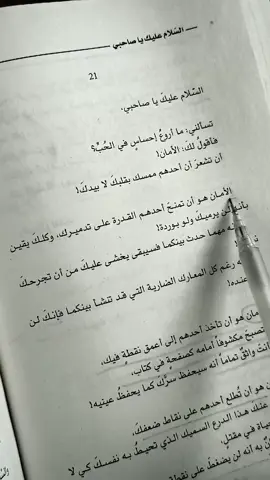 السّلام عليك يا صاحبي
21
السّلام عليكَ يا صاحبي،
تسألني: ما أروعُ إحساسٍ في الحُبِّ؟
فأقولُ لكَ: الأمان!
أن تشعرَ أن أحدهم ممسك بقلبكَ لا بيدكَ!
الأمان هو أن تمنحَ أحدهم القدرة على تدميرك، وكلّكَ يقين
لن يرميكَ ولو بوردة!
مهما حدث بينكما فسيبقى يخشى عليكَ من أن تجرحكَ
رغم كل المعارك الضارية التي قد تنشأ بينكما فإنكَ لن
عنده!
هو أن تأخذ أحدهم إلى أعمق نقطةٍ فيك،
تصبحَ مكشوفاً أمامه كصفحةٍ في كتاب،
أنتَ واثقٌ تماماً أنه سيحفظ سرَّكَ كما يحفظُ عينيه!
هو أن تُطلع أحدهم على نقاط ضعفكَ،
عنك هذا الدرع السميك الذي تحيطُ به نفسكَ كي لا
في مقتلٍ
به أنه لن يضغطَ على